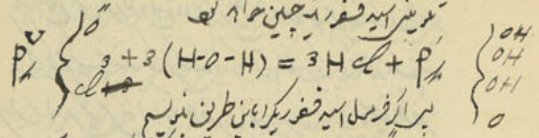 اسید فسفریک چنین خواهد بود
P^v { O'' Cl 3 + 3 (H-O-H) = 3 H Cl + P { OH OH OH O
پس اگر فرمول اسید فسفریک را باین طریق بنویسیم